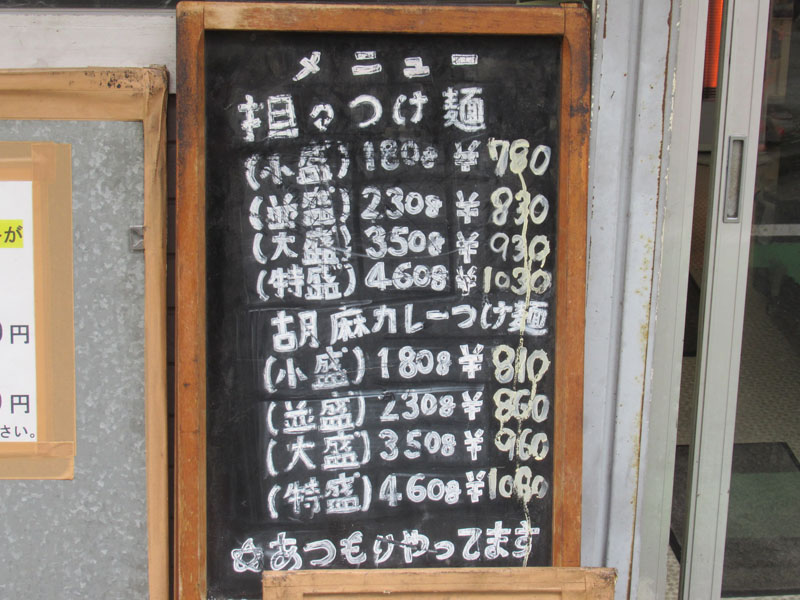 メニュー
担々つけ麺
(小盛) 180g ¥780
(並盛) 230g ¥830
(大盛) 350g ¥930
(特盛) 460g ¥1030
胡麻カレーつけ麺
(小盛) 180g ¥810
(並盛) 230g ¥860
(大盛) 350g ¥960
(特盛) 460g ¥1060
☆あつもりやってます
が
円
円
さい。